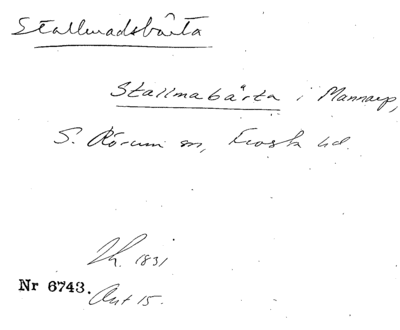 Stallmadsbärta
Stallmabärta i Mannarp,
S. Rörum sn, Frosta hd.
Lh. 1831
Nr 6743. Akt 15.